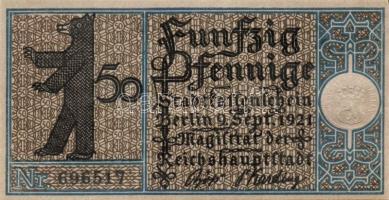 Funfzig
50 Pfennige
Stadtkassenschein
Berlin 9. Sept. 1921
Magistrat der
Reichshauptstadt
Nr. 696517